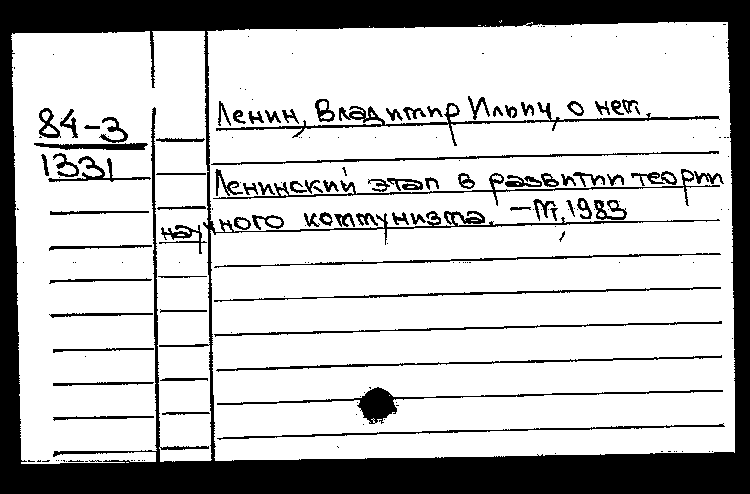 84-3
1331
Ленин, Владимир Ильич, о нем.
Ленинский этап в развитии теории
научного коммунизма. - М., 1983